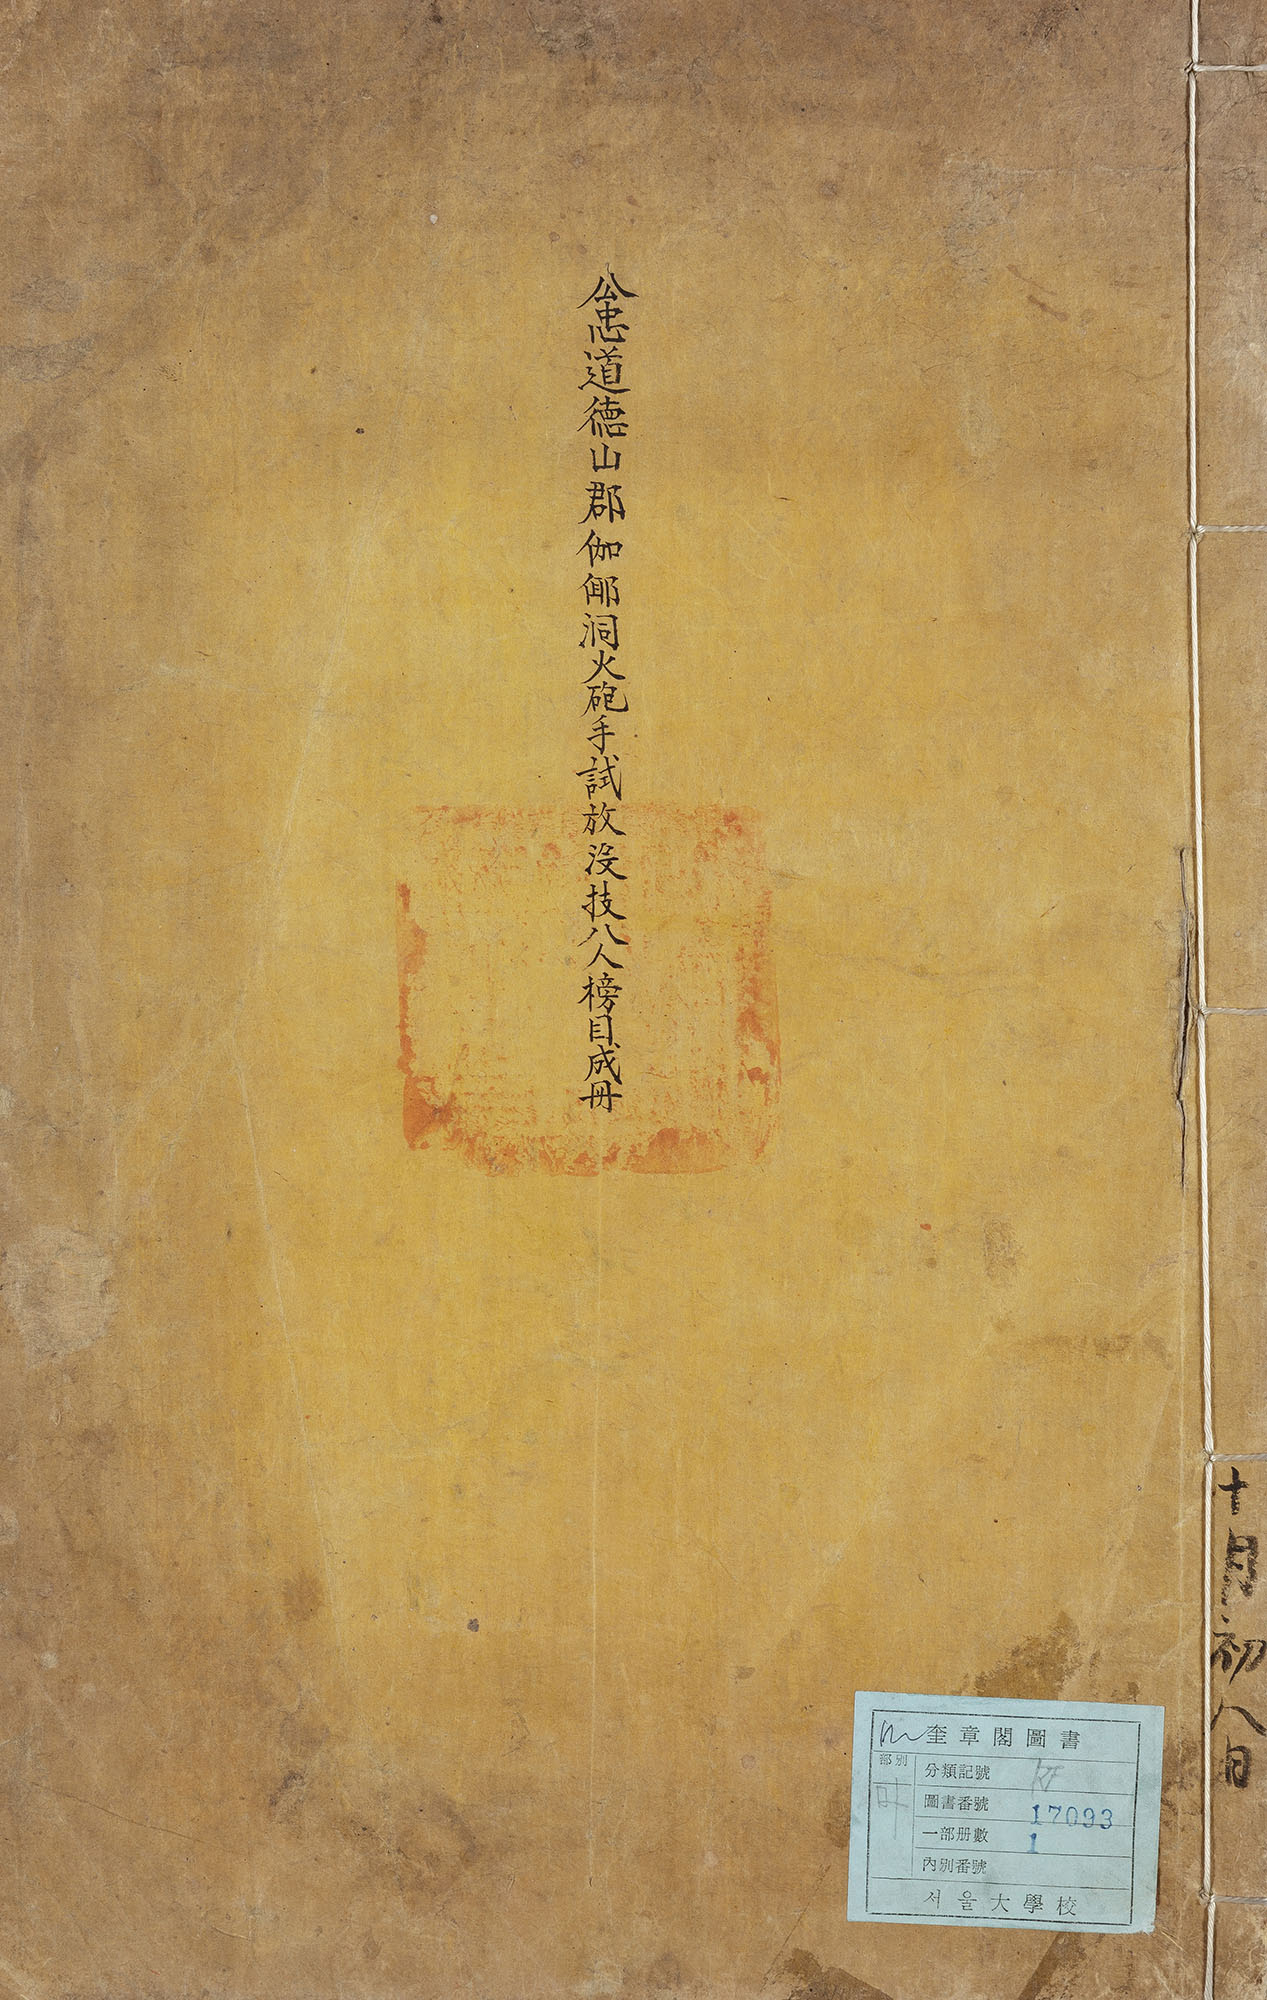 公忠道德山郡伽倻洞火砲手試放沒技八人榜目成冊
十月初八日
奎章閣圖書
部別
分類記號
圖書番號 17093
一部册數 1
內別番號
서울大學校